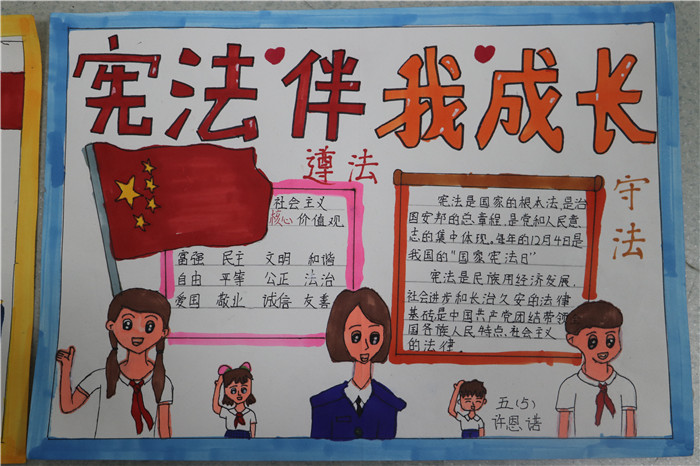 宪法伴我成长
遵法
社会主义
核心价值观
富强 民主 文明 和谐
自由 平等 公正 法治
爱国 敬业 诚信 友善
宪法是国家的根本法,是治
国安邦的总章程,是党和人民意
志的集中体现。每年的12月4日是
我国的“国家宪法日”
宪法是民族用经济发展,
社会进步和长治久安的法律
基础是中国共产党团结带领
国各族人民特点、社会主义
的法律。
守法
五(5)
许恩诺